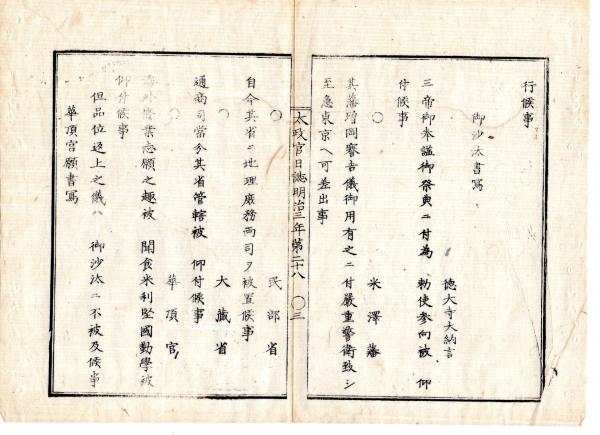 行候事
御沙汰書寫
德大寺大納言
三帝御奉謚御祭典ニ付為 勅使參向被 仰
付候事
○ 米澤藩
其藩増岡齊吉儀御用有之ニ付嚴重警衛致シ
至急東京ヘ可差出事
太政官日誌明治三年第二十八 ○三
○ 民部省
自今其省ニ地理庶務両司ヲ被置候事
○ 大藏省
通商司當分其省管轄被 仰付候事
○ 華頂宮
海外 業志願之趣被 聞食米利堅國勤學被
仰付候事
但品位返上之儀ハ 御沙汰ニ不被及候事
華頂宮願書寫